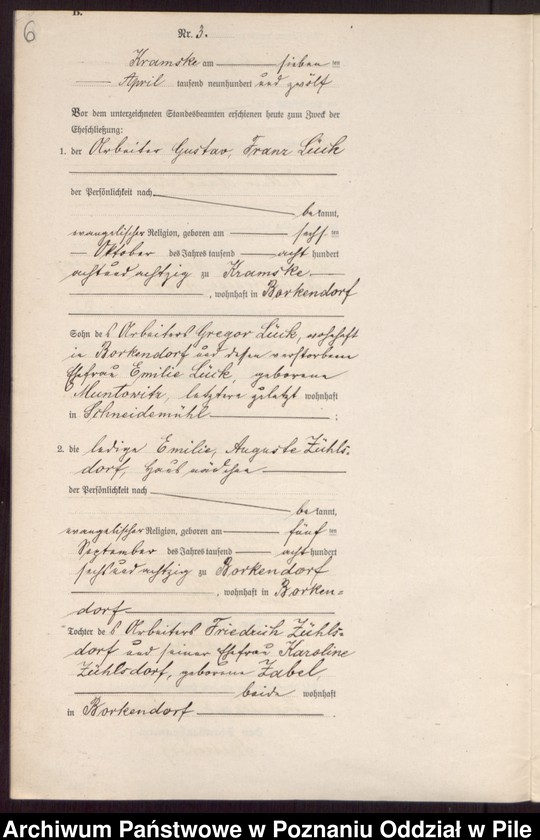 B.
6
Nr. 3.
Kramske am sieben ten
April tausend neunhundert und zwölf
Vor dem unterzeichneten Standesbeamten erschienen heute zum Zweck der
Eheschließung:
1. der Arbeiter Gustav, Franz Lück
der Persönlichkeit nach
be kannt,
evangelischer Religion, geboren am sechs ten
Oktober des Jahres tausend acht hundert
achtundachtzig zu Kramske
, wohnhaft in Borkendorf
Sohn des Arbeiters Gregor Lück, wohnhaft
in Borkendorf und dessen verstorbene
Ehefrau Emilie Lück, geborene
Muntowitz, letztere zuletzt wohnhaft
in Schneidemühl ;
2. die ledige Emilie, Auguste Zühls-
dorf, Hausmädchen
der Persönlichkeit nach
be kannt,
evangelischer Religion, geboren am fünf ten
September des Jahres tausend acht hundert
sechsundachtzig zu Borkendorf
, wohnhaft in Borken-
dorf
Tochter des Arbeiters Friedrich Zühls-
dorf und seiner Ehefrau Karoline
Zühlsdorf, geborene Zabel,
beide wohnhaft
in Borkendorf .
Archiwum Państwowe w Poznaniu Oddział w Pile